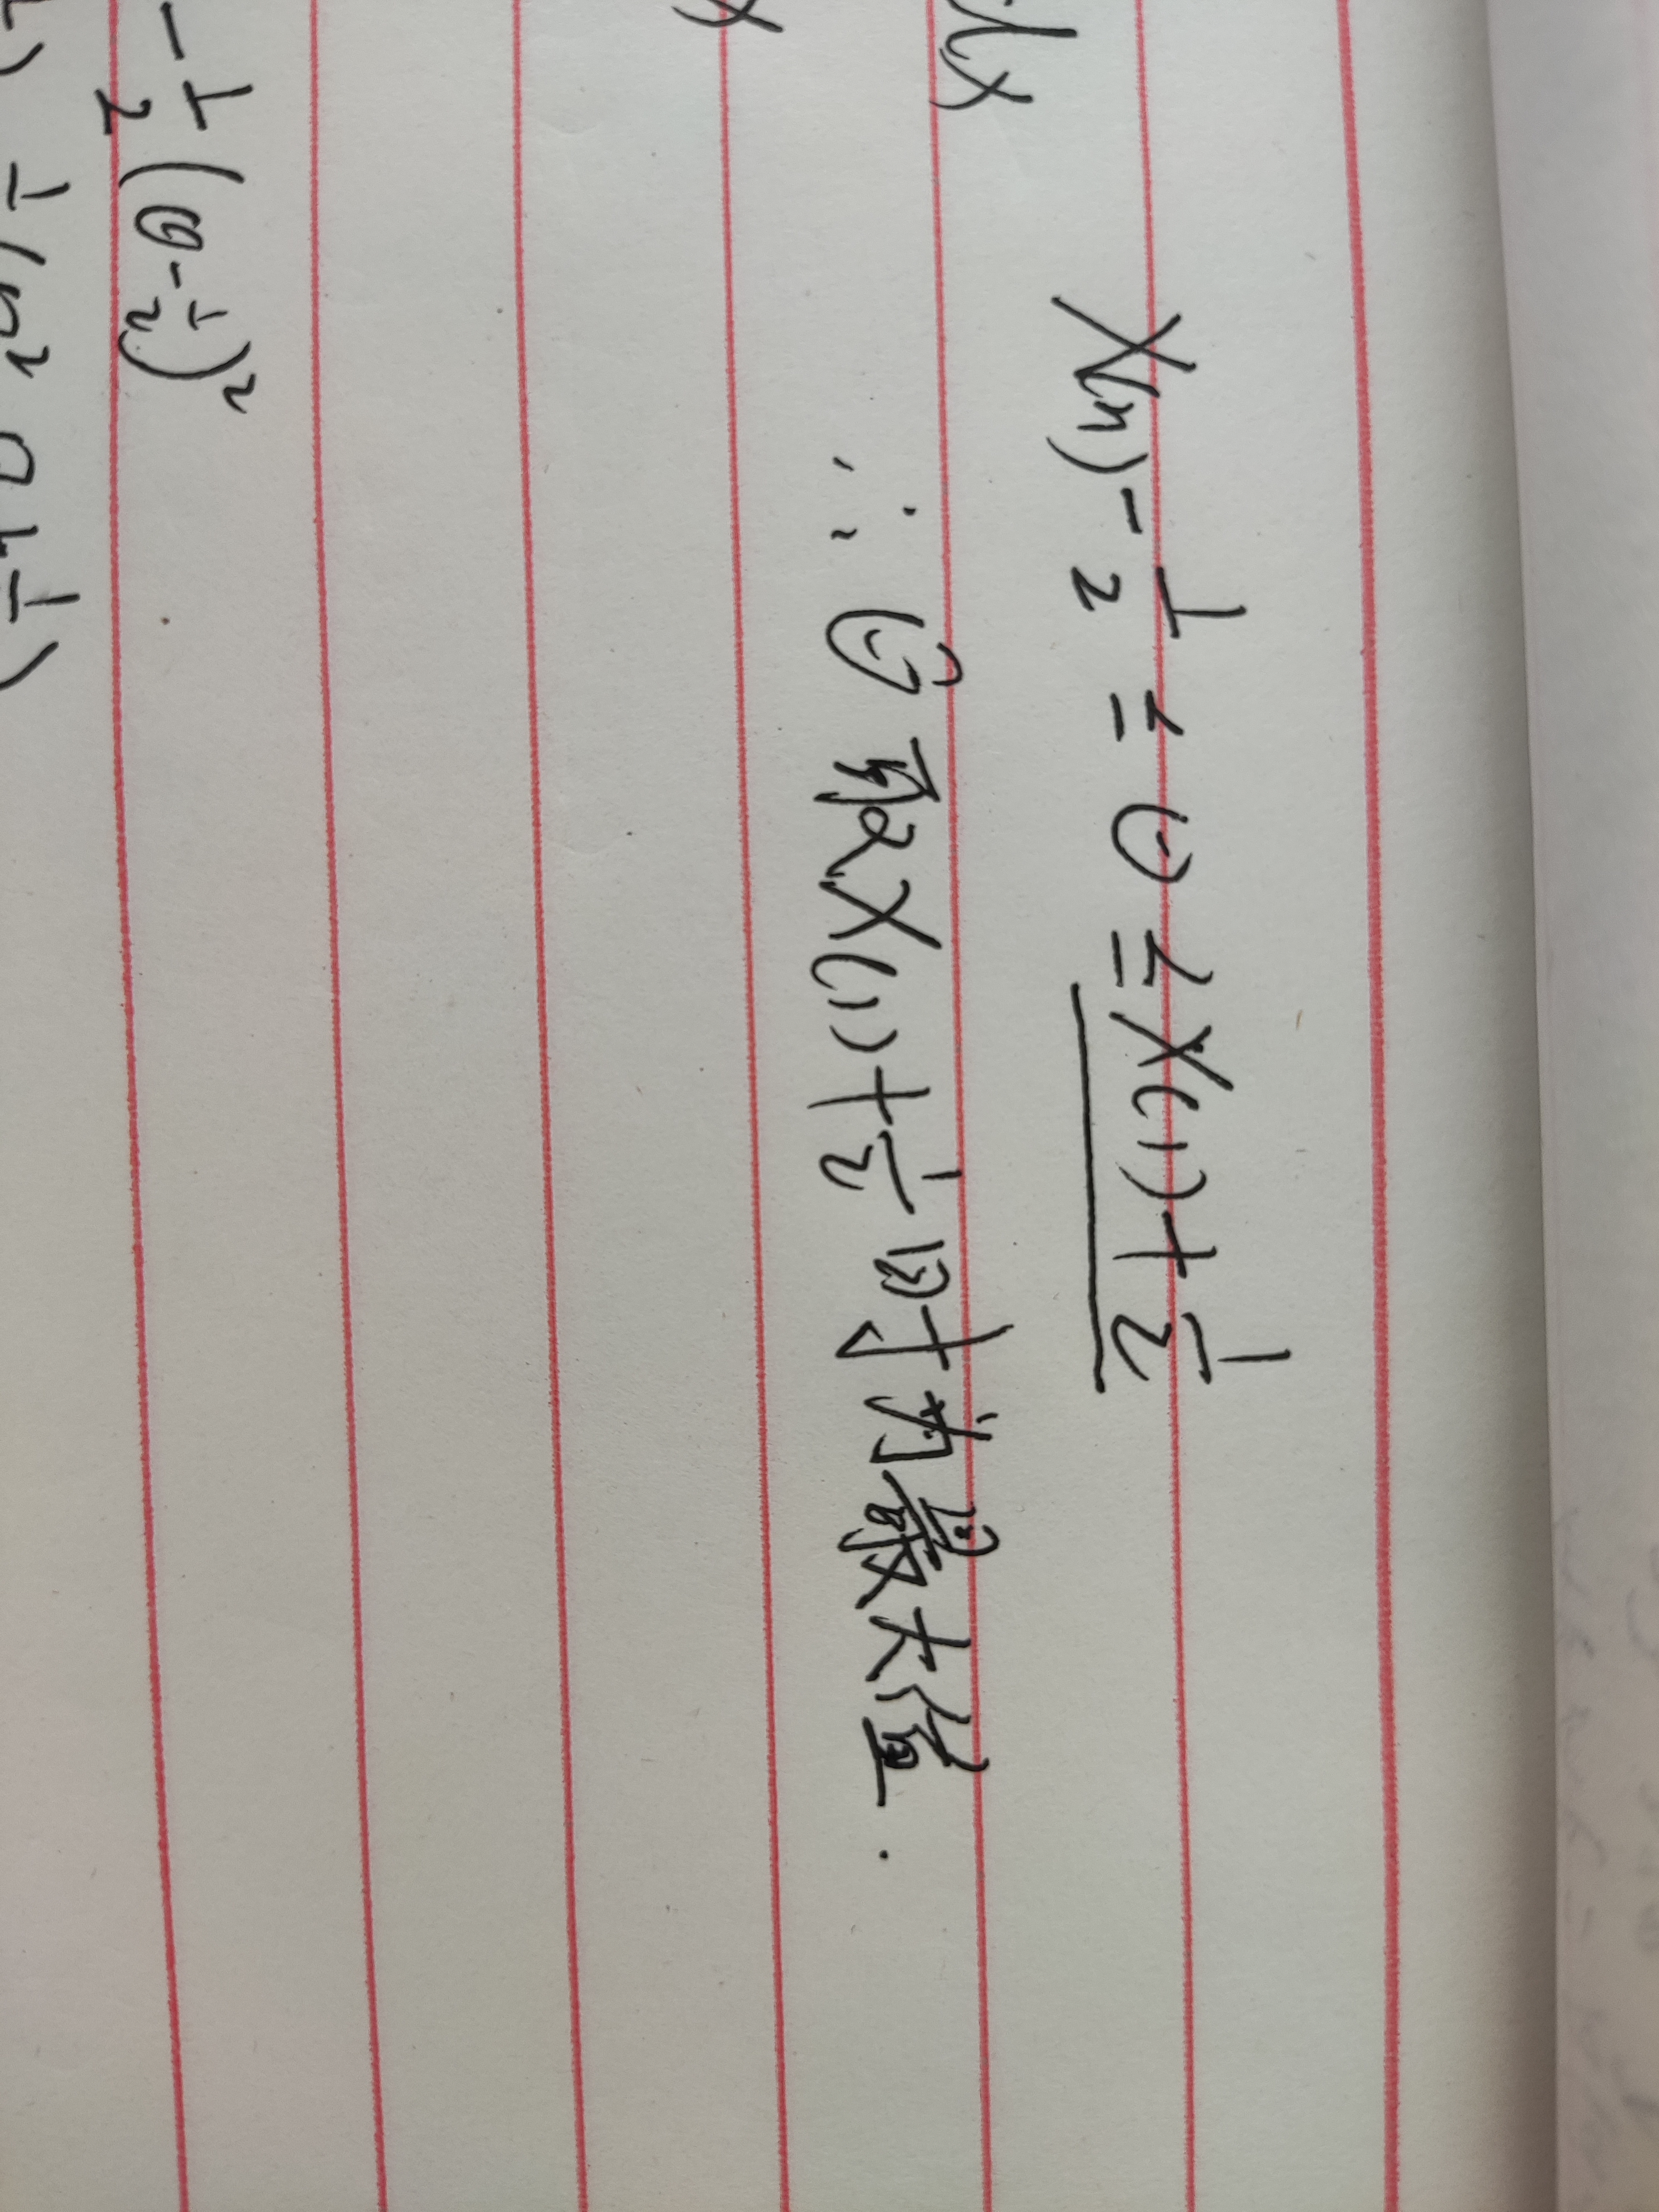 X(n) - 1/2 ≤ θ ≤ X(1) + 1/2
dx
∴ θ̂ 取 X(1) + 1/2 时为最大值.
x
- 1/2 (θ - 1/2)²